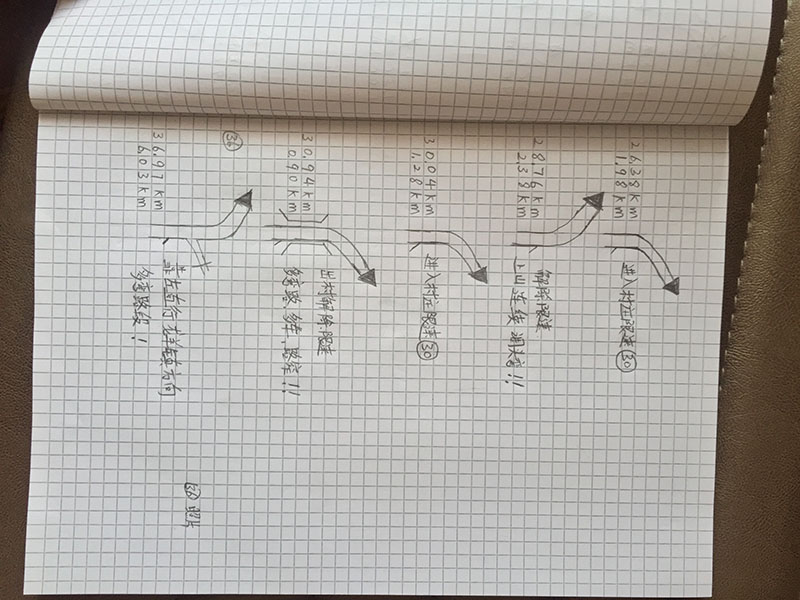 26.38km
1.98km
进入村庄限速㉚
28.76km
2.38km
解除限速
上山连续 调头弯!!
30.04km
1.28km
进入村庄限速㉚
30.94km
0.90km
出村解除限速
多弯路 多车、路窄!!
㊱
36.97km
6.03km
靠左直行 方向
多弯路段!
照片